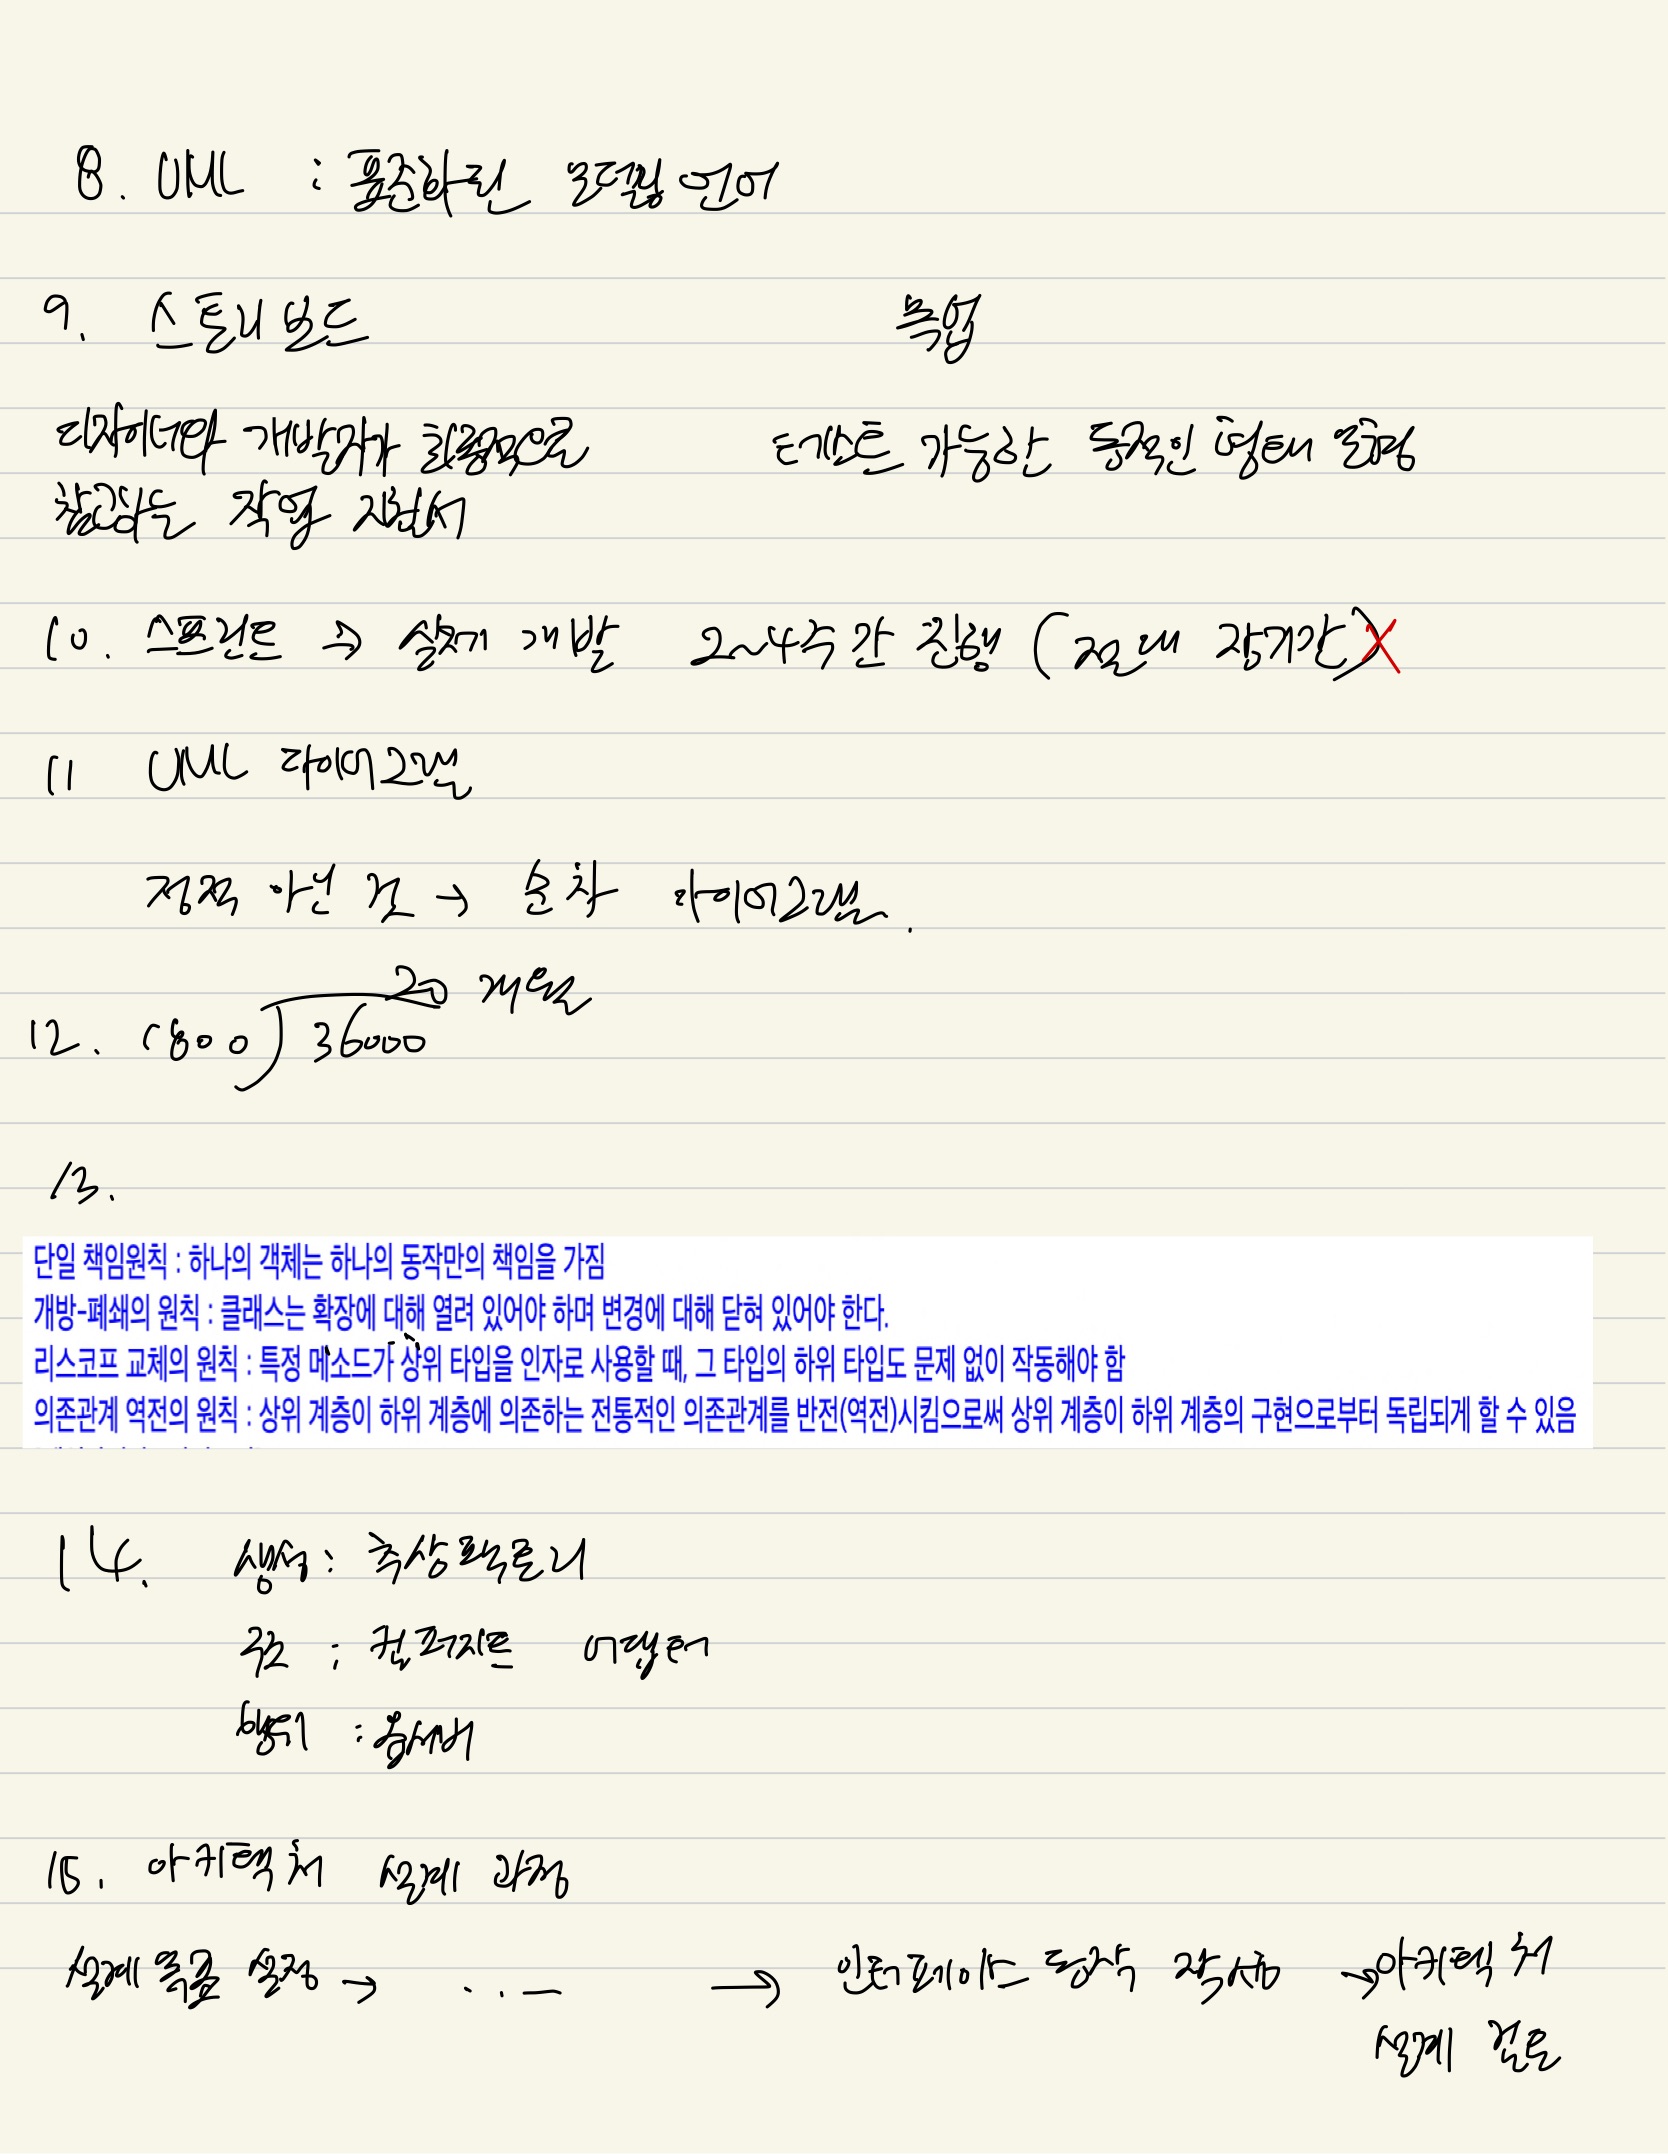 8. UML : 표준화된 모델링 언어
9. 스토리보드
목업
디자이너와 개발자가 최종적으로
참고하는 작업 지침서
테스트 가능한 동적인 형태 모형
10. 스프린트 → 실제 개발 2~4주간 진행 (절대 장기간)X
11 UML 다이어그램
정적 아닌 건 → 순차 다이어그램.
20 개월
12. 1800 ) 36000
13.
단일 책임원칙 : 하나의 객체는 하나의 동작만의 책임을 가짐
개방-폐쇄의 원칙 : 클래스는 확장에 대해 열려 있어야 하며 변경에 대해 닫혀 있어야 한다.
리스코프 교체의 원칙 : 특정 메소드가 상위 타입을 인자로 사용할 때, 그 타입의 하위 타입도 문제 없이 작동해야 함
의존관계 역전의 원칙 : 상위 계층이 하위 계층에 의존하는 전통적인 의존관계를 반전(역전)시킴으로써 상위 계층이 하위 계층의 구현으로부터 독립되게 할 수 있음
14. 생성 : 추상팩토리
구조 : 컴퍼지트 어댑터
행위 : 옵서버
15. 아키텍처 설계 과정
설계 목표 설정 → ... → 인터페이스 동작 작성 → 아키텍처
설계 검토